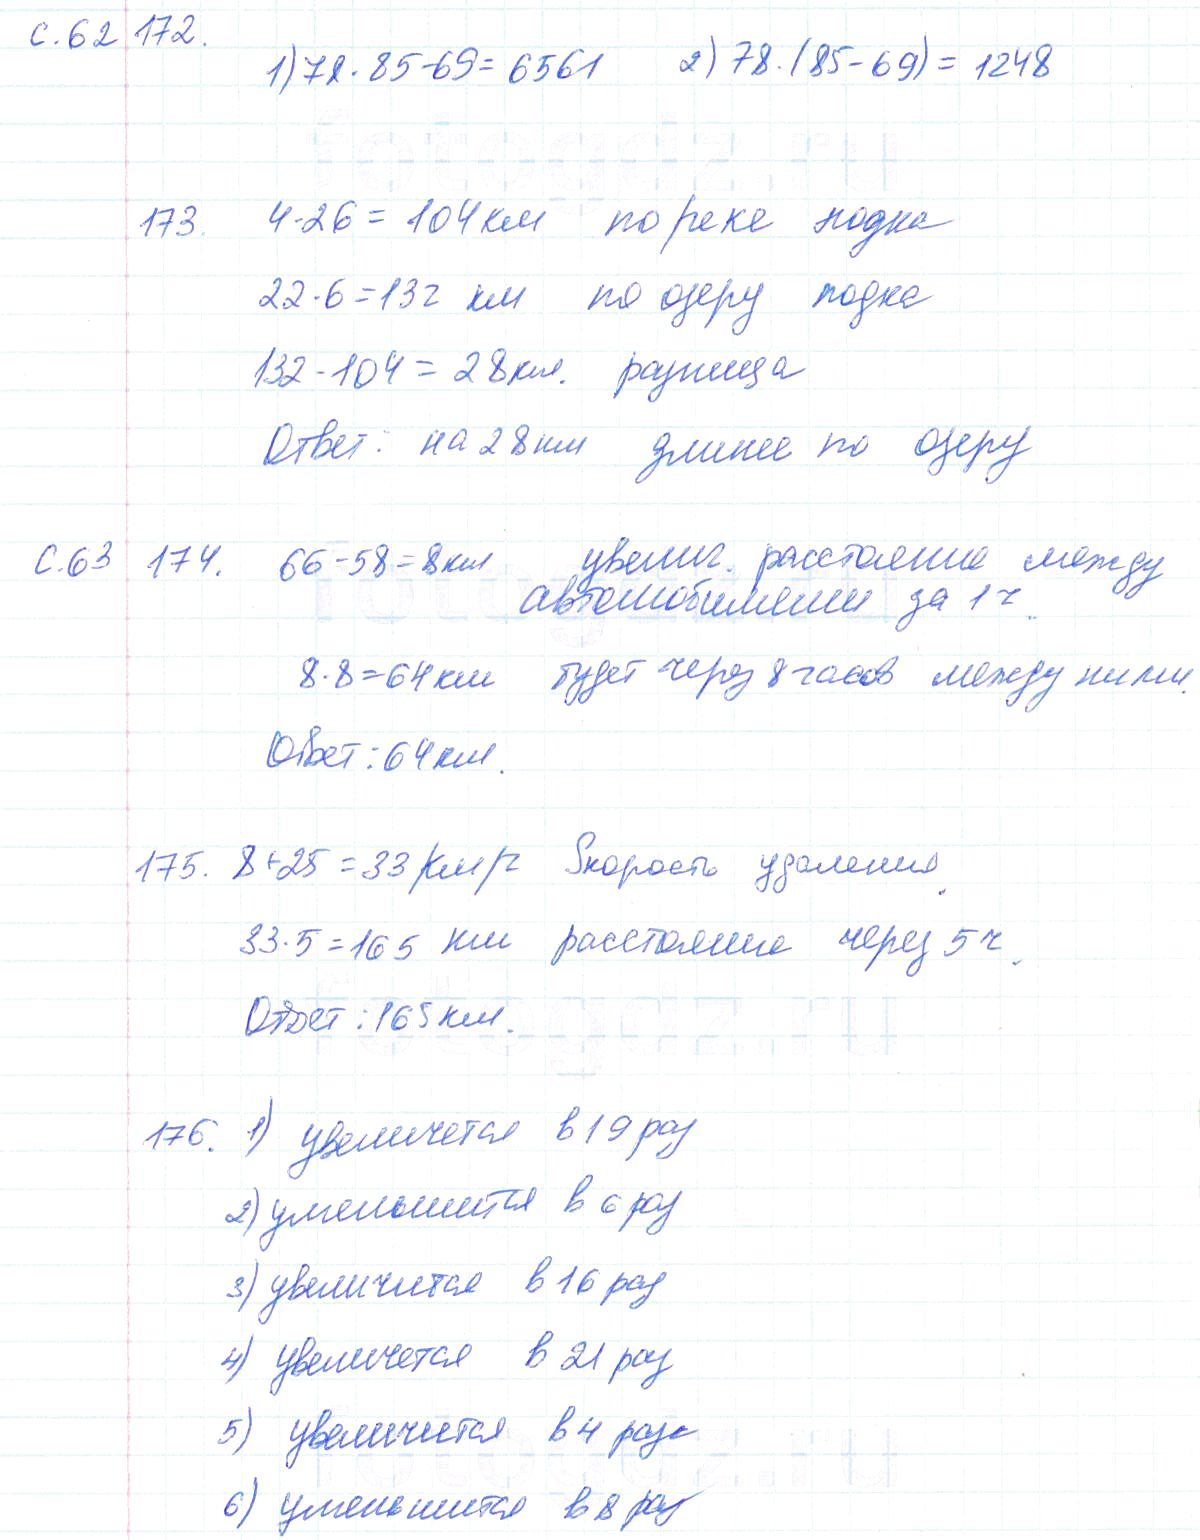 с.62 172.
1) 78·85-69=6561 2) 78·(85-69)=1248
fotogdz.ru
173. 4·26=104км по реке лодка
22·6=132 км по озеру лодка
132-104=28км. разница
Ответ: на 28км длинее по озеру
С.63 174. 66-58=8км увелич. расстояние между
автомобилями за 1ч.
8·8=64км будет через 8 часов между ними.
Ответ: 64км.
175. 8+25=33 км/ч Скорость удаления.
33·5=165 км расстояние через 5ч.
Ответ: 165км.
fotogdz.ru
176. 1) увеличется в 19 раз
2) уменьшится в 6 раз
3) увеличится в 16 раз
4) увеличется в 21 раз
5) увеличится в 4 раза
6) уменьшится в 8 раз